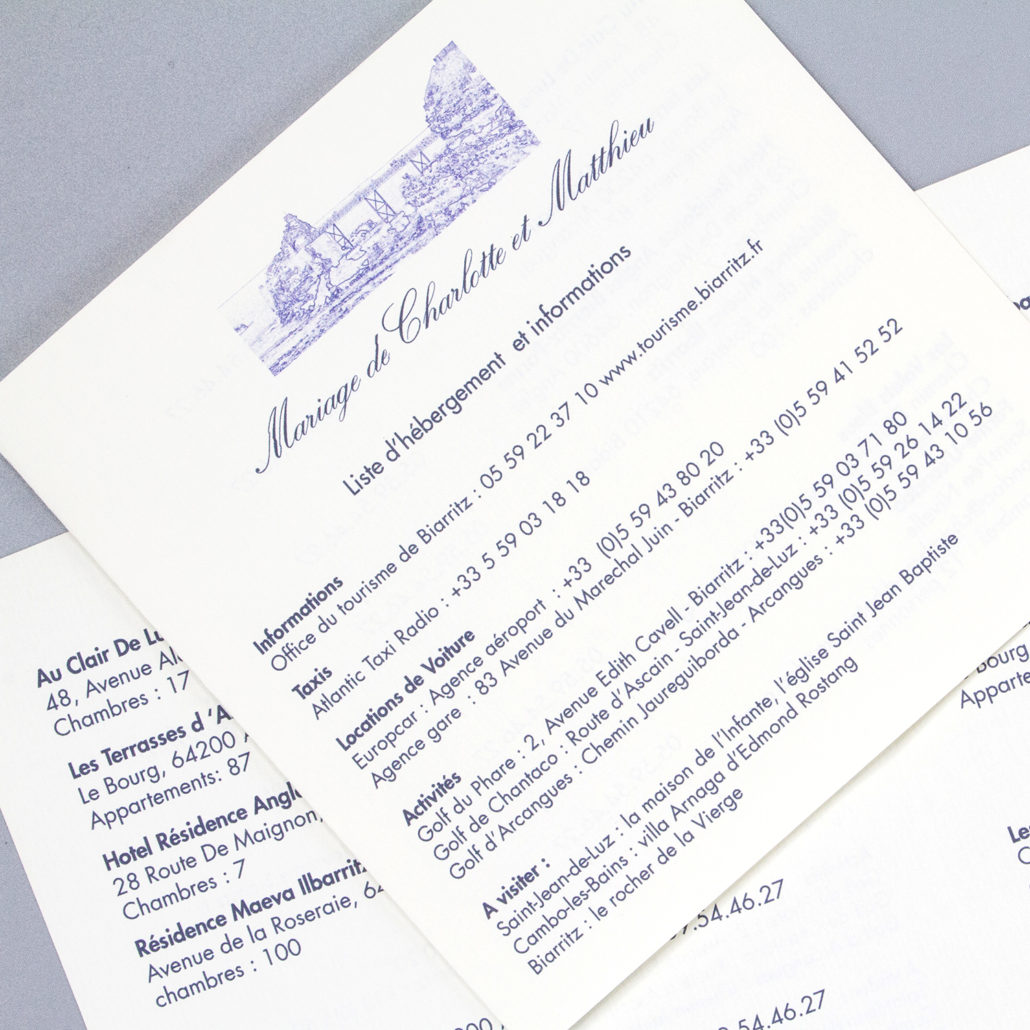 Mariage de Charlotte et Matthieu
Liste d'hébergement et informations
Informations
Office du tourisme de Biarritz : 05 59 22 37 10 www.tourisme.biarritz.fr
Taxis
Atlantic Taxi Radio : +33 5 59 03 18 18
Locations de Voiture
Europcar : Agence aéroport : +33 (0)5 59 43 80 20
Agence gare : 83 Avenue du Marechal Juin - Biarritz : +33 (0)5 59 41 52 52
Activités
Golf du Phare : 2, Avenue Edith Cavell - Biarritz : +33(0)5 59 03 71 80
Golf de Chantaco : Route d'Ascain - Saint-Jean-de-Luz : +33 (0)5 59 26 14 22
Golf d'Arcangues : Chemin Jaureguiborda - Arcangues : +33 (0)5 59 43 10 56
A visiter :
Saint-Jean-de-Luz : la maison de l'Infante, l'église Saint Jean Baptiste
Cambo-les-Bains : villa Arnaga d'Edmond Rostang
Biarritz : le rocher de la Vierge
Au Clair De
48, Avenue
Chambres : 17
Les Terrasses d'
Le Bourg, 64200
Appartements: 87
Hotel Résidence
28 Route De Maignon,
Chambres : 7
Résidence Maeva Ilbarritz
Avenue de la Roseraie,
chambres : 100
.54.46.27
.54.46.27
Bourg,